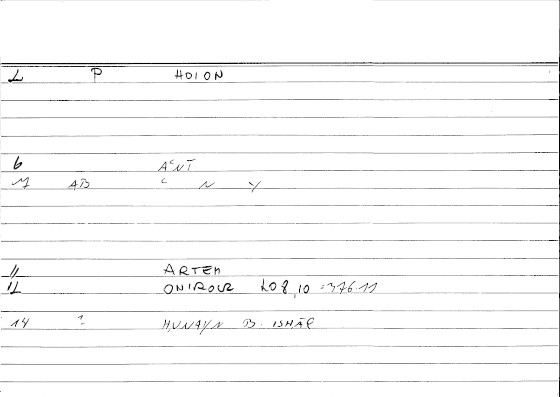 1 P HOION
6 AᶜNT
7 AB ᶜ N Y
11 ARTEM
12 ONIROCR 208,10 = 376.11
14 ? ḤUNAYN B. ISḤĀQ